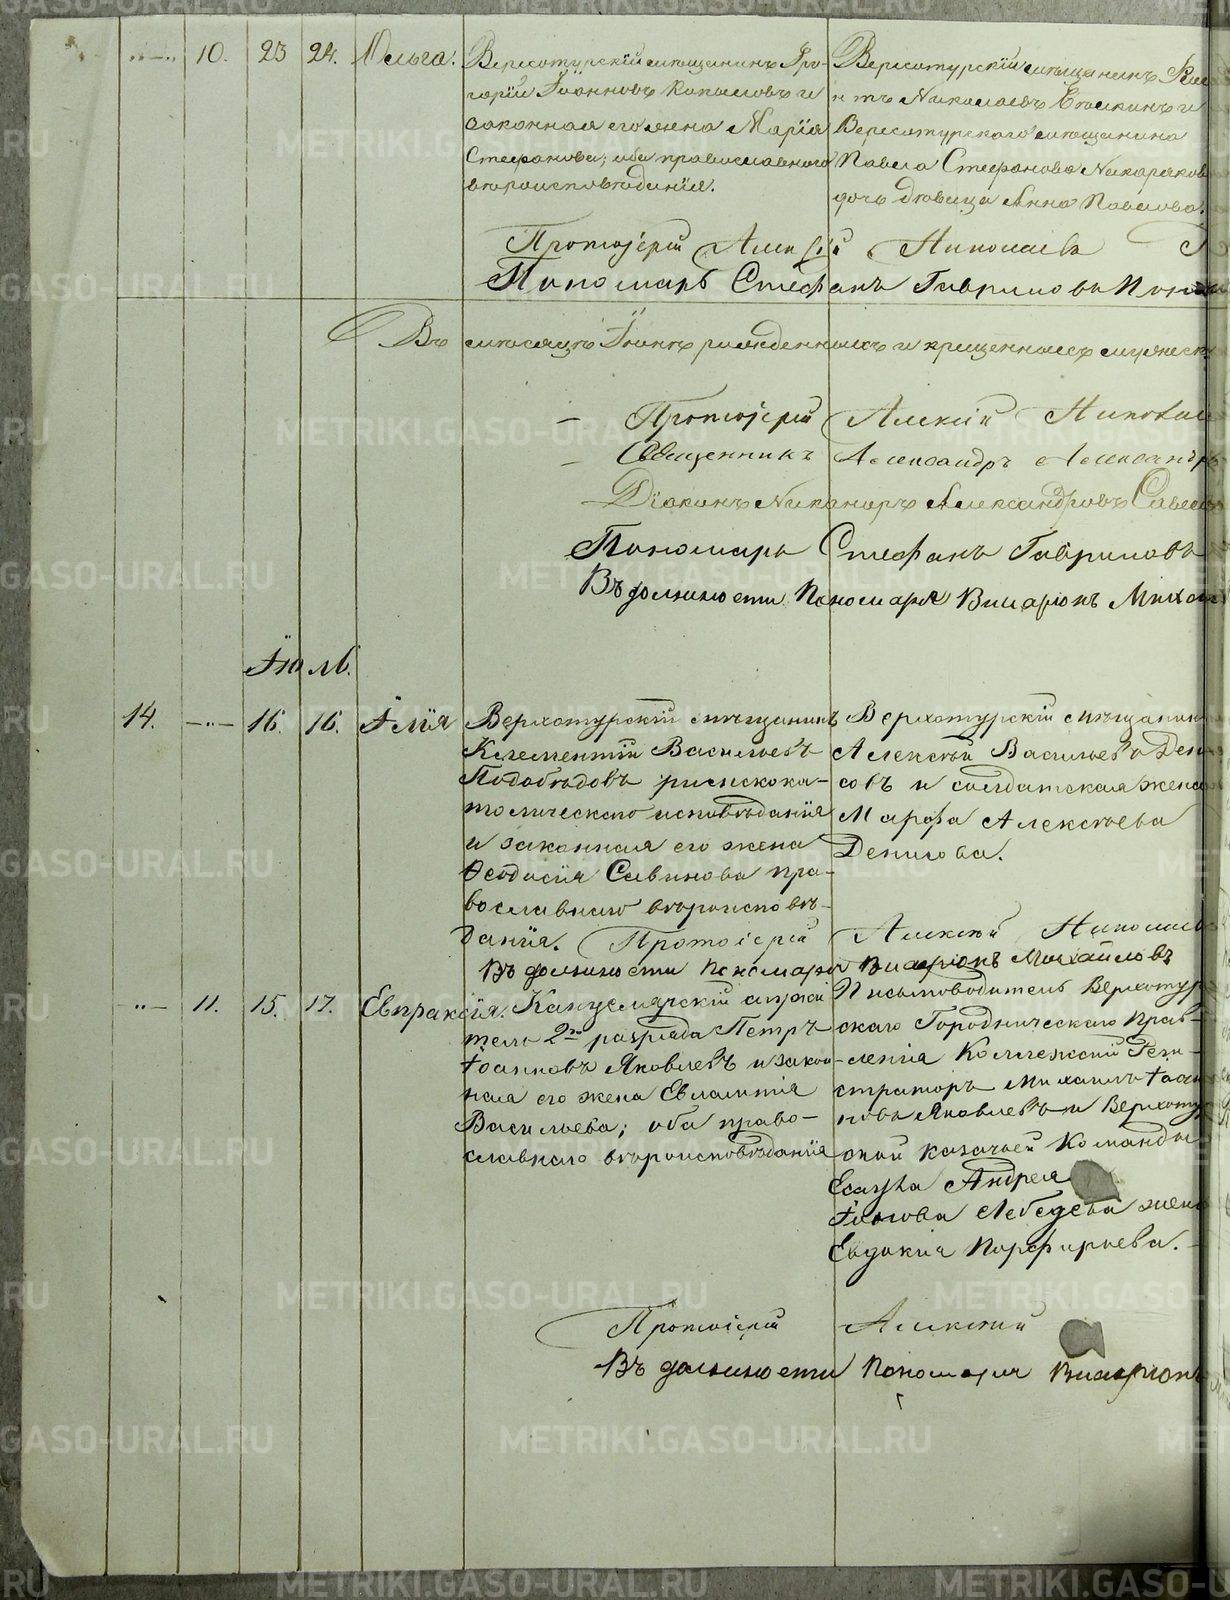 10. 23 24. Ольга.
Верхотурскій мѣщанинъ Гри-
горій Іоанновъ Копыловъ и
законная его жена Марія
Стефанова; оба православнаго
вѣроисповѣданія.
Верхотурскій мѣщанинъ
Николаевъ и
Верхотурскаго мѣщанина
Павла Стефанова
дочь дѣвица Анна Павлова.
Протоіерей Алексій Николаевъ
Пономарь Стефанъ Гавриловъ
Въ мѣсяцѣ Іюнѣ рожденныхъ и крещенныхъ мужеск
Протоіерей Алексій
Священникъ Александръ
Діаконъ Никаноръ Александровъ
Пономарь Стефанъ Гавриловъ
Въ должности Пономаря Виларіонъ
Іюль.
14. 16. 16. Илія
Верхотурскій мѣщанинъ
Климентій Васильевъ
Подобѣдовъ римскока-
толическаго исповѣданія
и законная его жена
Ѳеодосія Савинова пра-
вославнаго вѣроисповѣ-
данія.
Верхотурскій мѣщанинъ
Алексѣй Васильевъ Дени
совъ и солдатская жена
Марфа Алексѣева
Денисова.
Протоіерей Алексій Николаевъ
Въ должности Пономаря Виларіонъ Михайловъ
11. 15. 17. Евпраксія.
Канцелярскій служи
тель 2го разряда Петръ
Іоанновъ Яковлевъ и закон-
ная его жена Евлампія
Васильева; оба право-
славнаго вѣроисповѣданія
Письмоводитель Верхотур
скаго Городническаго Прав-
ленія Коллежскій Реги-
страторъ Михаилъ Іоан
новъ Яковлевъ и Верхотур
ской казачьей команды
Есаула Андрея
Лебедева жена
Евдокія Порфирьева.
Протоіерей Алексій
Въ должности Пономаря Виларіонъ
METRIKI.GASO-URAL.RU